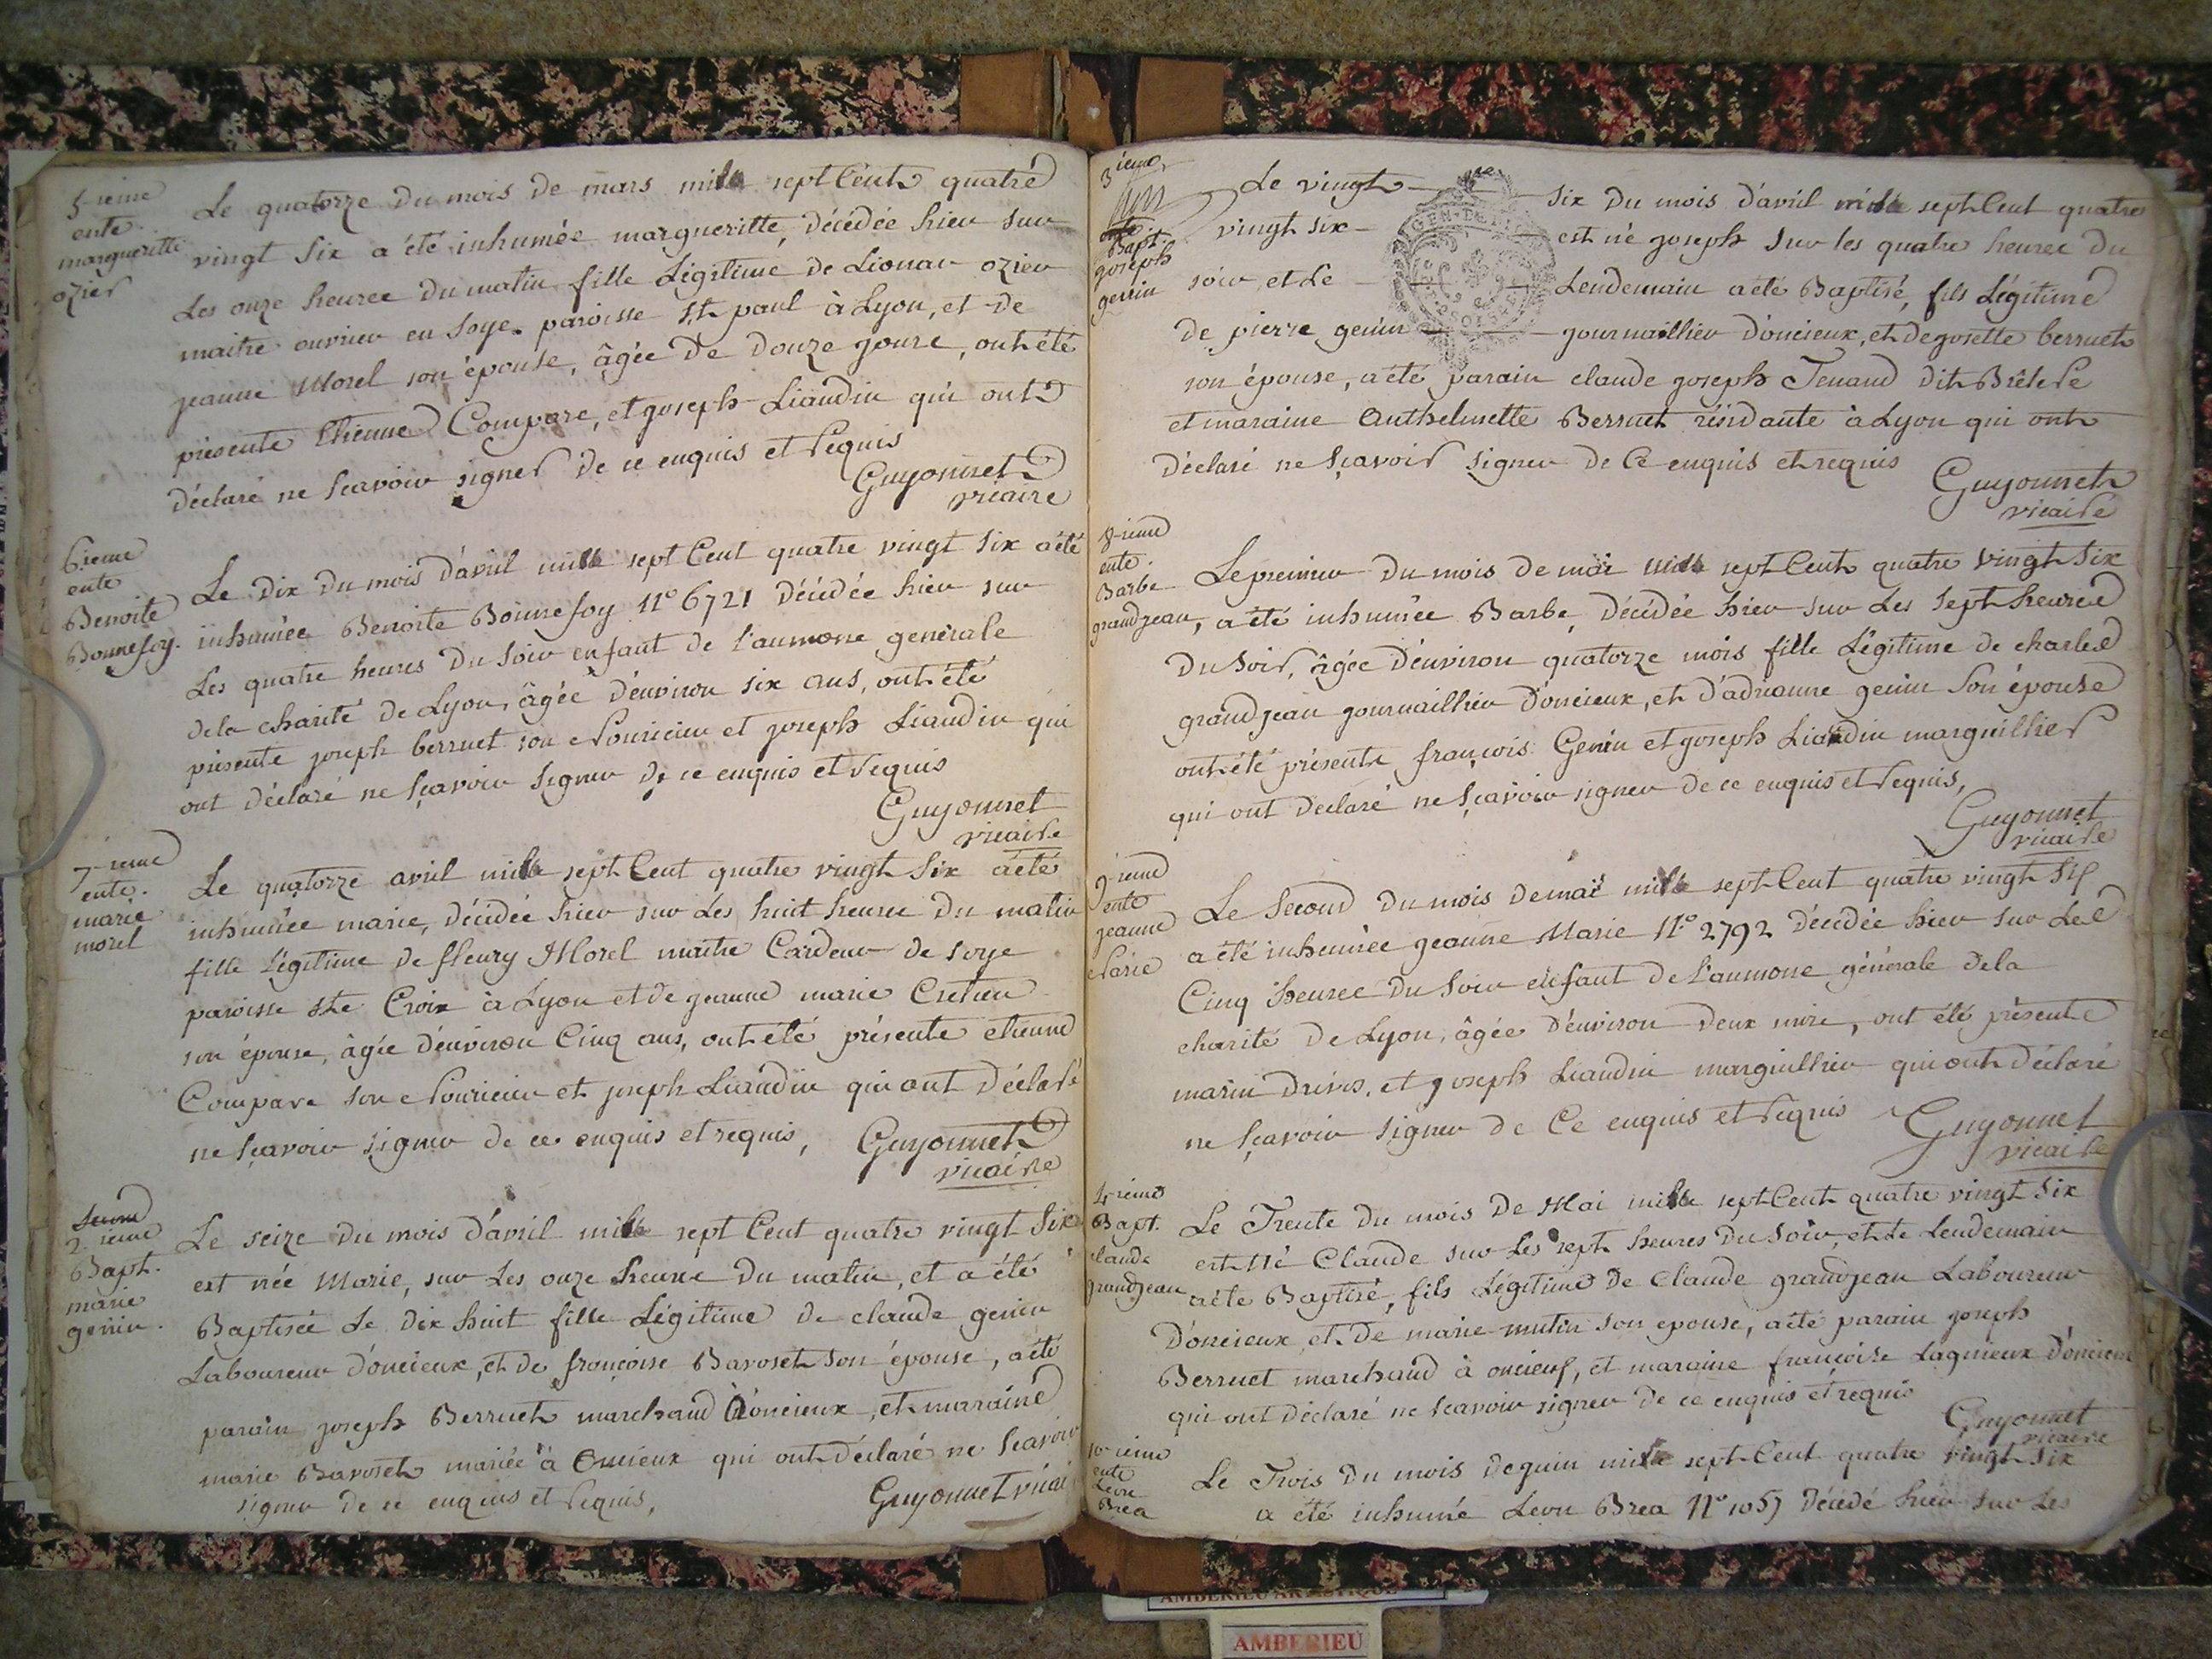 5-ieme
ente.
margueritte
ozier
Le quatorze du mois de mars mille sept Cent quatre
vingt six a été inhumée margueritte, décédée hier sur
Les onze heures du matin fille Légitime de Lionar ozier
maitre ouvrier en soye paroisse St paul à Lyon, et de
jeanne Morel son épouse, âgée de douze jours, ont été
présents Etienne Compare, et joseph Liaudin qui ont
déclaré ne scavoir signer de ce enquis et requis
Guyonnet
vicaire
6ieme
ente
Benoite
Bonnefoy.
Le dix du mois d'avril mille sept Cent quatre vingt six a été
inhumée Benoite Bonnefoy N° 6721 décédée hier sur
Les quatre heures du soir enfant de l'aumone generale
de la charité de Lyon, âgée d'environ six ans, ont été
présents joseph berruet son Nouricier et joseph Liaudin qui
ont déclaré ne sçavoir signer de ce enquis et requis
Guyonnet
vicaire
7-ieme
ente.
marie
morel
Le quatorze avril mille sept Cent quatre vingt six a été
inhumée marie, décédée hier sur Les huit heures du matin
fille Légitime de fleury Morel maitre Cardeur de soye
paroisse Ste Croix à Lyon et de jeanne marie Cretien
son épouse, âgée d'environ Cinq ans, ont été présents etienne
Compare son Nouricier et joseph Liaudin qui ont déclaré
ne sçavoir signer de ce enquis et requis,
Guyonnet
vicaire
2 ieme
Bapt.
marie
genin.
Le seize du mois d'avril mille sept Cent quatre vingt Six
est née Marie, sur Les onze heures du matin, et a été
Baptisée Le dix huit fille Légitime de claude genin
Laboureur d'oncieux, et de françoise Baroset son épouse, a été
parain joseph Berruet marchand d'oncieux, et maraine
marie Baroset mariée à Oncieux qui ont déclaré ne scavoir
signer de ce enquis et requis,
Guyonnet vicai
3 ieme
Bapt
joseph
genin
Le vingt six du mois d'avril mille sept Cent quatre
vingt six est né joseph sur les quatre heures du
soir, et Le Lendemain a été Baptisé, fils Légitime
de pierre genin journaillier d'oncieux, et de josette berruet
son épouse, a été parain claude joseph Tenand dit Brêlere
et maraine Anthelmette Berruet résidante à Lyon qui ont
déclaré ne sçavoir signer de Ce enquis et requis
Guyonnet
vicaire
8-ieme
ente.
Barbe
grandjean,
Le premier du mois de mai mille sept Cent quatre vingt Six
a été inhumée Barbe, décédée hier sur Les sept heures
du soir, âgée d'environ quatorze mois fille Légitime de charles
grandjean journaillier d'oncieux, et d'adrianne genin son épouse
ont été présents françois Genin et joseph Liaudin marguillier
qui ont déclaré ne sçavoir signer de ce enquis et requis,
Guyonnet
vicaire
9-ieme
ente
jeanne
Marie
Le Second du mois de mai mille sept Cent quatre vingt Six
a été inhumée jeanne Marie N° 2792 décédée hier sur Les
Cinq heures du soir enfant de l'aumone générale de la
charité de Lyon, âgée d'environ deux mois, ont été présents
marin et joseph Liaudin marguillier qui ont déclaré
ne sçavoir signer de Ce enquis et requis
Guyonnet
vicaire
4-ieme
Bapt.
claude
grandjean
Le Trente du mois de Mai mille sept Cent quatre vingt six
est Né Claude sur Les sept heures du soir, et Le Lendemain
a été Baptisé, fils Légitime de Claude grandjean Laboureur
d'oncieux, et de marie mutin son epouse, a été parain joseph
Berruet marchand à oncieux, et maraine françoise Lagnieux d'oncieux
qui ont déclaré ne scavoir signer de ce enquis et requis
Guyonnet
vicaire
10-ieme
ente
Leon
Brea
Le Trois du mois de juin mille sept Cent quatre vingt six
a été inhumé Leon Brea N° 1057 décédé hier sur Les
AMBERIEU